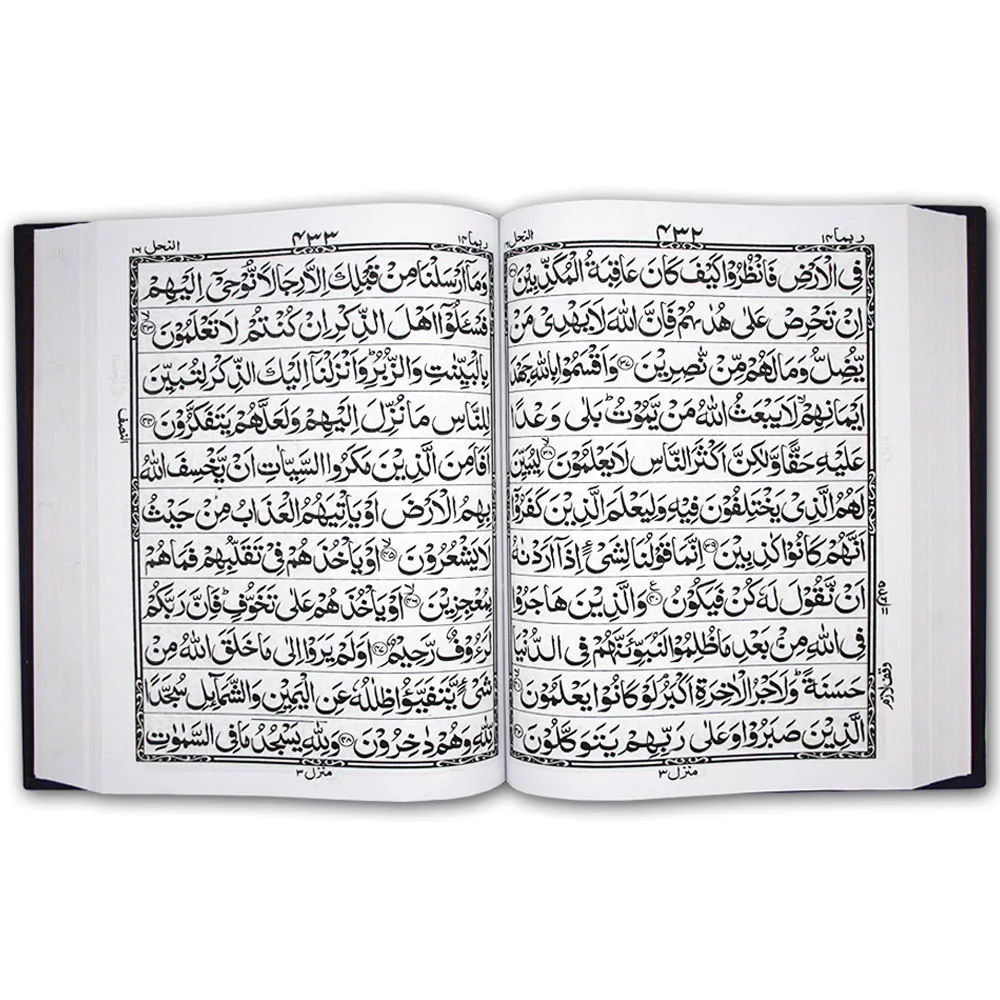 ربما ١٤
٤٣٢
النحل ١٦
فِی الْاَرْضِ فَانْظُرُوْا كَیْفَ كَانَ عَاقِبَةُ الْمُكَذِّبِیْنَ ﴿۳۶﴾
اِنْ تَحْرِصْ عَلٰی هُدٰىهُمْ فَاِنَّ اللّٰهَ لَا یَهْدِیْ مَنْ
یُّضِلُّ وَمَا لَهُمْ مِّنْ نّٰصِرِیْنَ ﴿۳۷﴾ وَاَقْسَمُوْا بِاللّٰهِ جَهْدَ
اَیْمَانِهِمْ ۙ لَا یَبْعَثُ اللّٰهُ مَنْ یَّمُوْتُ ؕ بَلٰی وَعْدًا
عَلَیْهِ حَقًّا وَّلٰكِنَّ اَكْثَرَ النَّاسِ لَا یَعْلَمُوْنَ ﴿۳۸﴾ۙ لِیُبَیِّنَ
لَهُمُ الَّذِیْ یَخْتَلِفُوْنَ فِیْهِ وَلِیَعْلَمَ الَّذِیْنَ كَفَرُوْۤا
اَنَّهُمْ كَانُوْا كٰذِبِیْنَ ﴿۳۹﴾ اِنَّمَا قَوْلُنَا لِشَیْءٍ اِذَاۤ اَرَدْنٰهُ
اَنْ نَّقُوْلَ لَهٗ كُنْ فَیَكُوْنُ ﴿۴۰﴾ وَالَّذِیْنَ هَاجَرُوْا
فِی اللّٰهِ مِنْۢ بَعْدِ مَا ظُلِمُوْا لَنُبَوِّئَنَّهُمْ فِی الدُّنْیَا
حَسَنَةً ؕ وَلَاَجْرُ الْاٰخِرَةِ اَكْبَرُ ۘ لَوْ كَانُوْا یَعْلَمُوْنَ ﴿۴۱﴾ۙ
الَّذِیْنَ صَبَرُوْا وَعَلٰی رَبِّهِمْ یَتَوَكَّلُوْنَ ﴿۴۲﴾
وقف لازم
منزل ٣
ربما ١٤
٤٣٣
النحل ١٦
وَمَاۤ اَرْسَلْنَا مِنْ قَبْلِكَ اِلَّا رِجَالًا نُّوْحِیْۤ اِلَیْهِمْ
فَسْـَٔلُوْۤا اَهْلَ الذِّكْرِ اِنْ كُنْتُمْ لَا تَعْلَمُوْنَ ﴿۴۳﴾ۙ
بِالْبَیِّنٰتِ وَالزُّبُرِ ؕ وَاَنْزَلْنَاۤ اِلَیْكَ الذِّكْرَ لِتُبَیِّنَ
لِلنَّاسِ مَا نُزِّلَ اِلَیْهِمْ وَلَعَلَّهُمْ یَتَفَكَّرُوْنَ ﴿۴۴﴾
اَفَاَمِنَ الَّذِیْنَ مَكَرُوا السَّیِّاٰتِ اَنْ یَّخْسِفَ اللّٰهُ
بِهِمُ الْاَرْضَ اَوْ یَاْتِیَهُمُ الْعَذَابُ مِنْ حَیْثُ
لَا یَشْعُرُوْنَ ﴿۴۵﴾ۙ اَوْ یَاْخُذَهُمْ فِیْ تَقَلُّبِهِمْ فَمَا هُمْ
بِمُعْجِزِیْنَ ﴿۴۶﴾ۙ اَوْ یَاْخُذَهُمْ عَلٰی تَخَوُّفٍ ؕ فَاِنَّ رَبَّكُمْ
لَرَءُوْفٌ رَّحِیْمٌ ﴿۴۷﴾ اَوَلَمْ یَرَوْا اِلٰی مَا خَلَقَ اللّٰهُ مِنْ
شَیْءٍ یَّتَفَیَّؤُا ظِلٰلُهٗ عَنِ الْیَمِیْنِ وَالشَّمَآئِلِ سُجَّدًا
لِّلّٰهِ وَهُمْ دٰخِرُوْنَ ﴿۴۸﴾ وَلِلّٰهِ یَسْجُدُ مَا فِی السَّمٰوٰتِ
النصف
منزل ٣